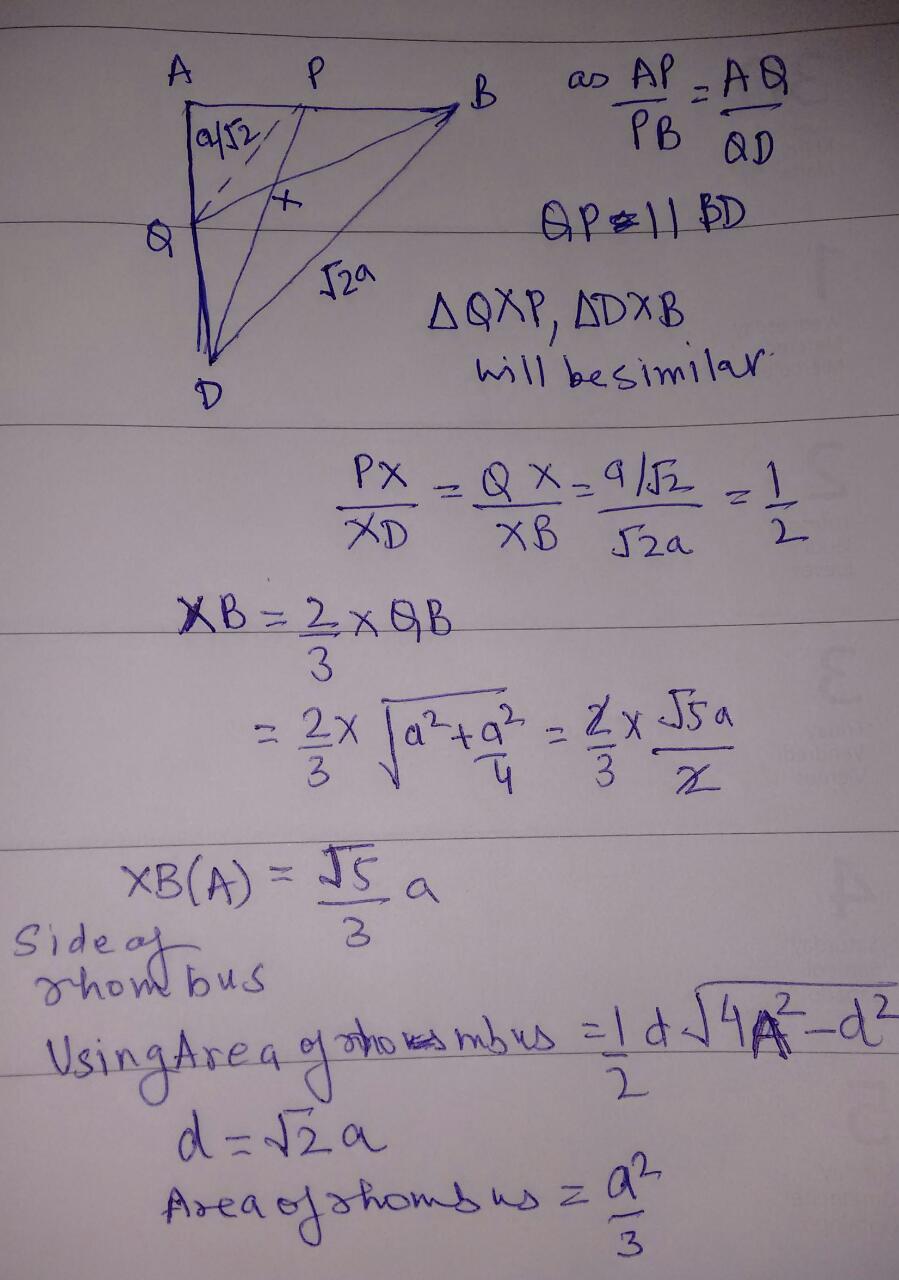 A P B
as AP/PB = AQ/QD
a/√2
X
Q
QP || BD
√2a
ΔQXP, ΔDXB
will be similar.
D
PX/XD = QX/XB = a/√2/√2a = 1/2
XB = 2/3 × QB
= 2/3 × √(a²+a²/4) = 2/3 × √5a/2
XB(A) = √5/3 a
Side of
rhombus
Using Area of rhombus = 1/2 d √(4A²-d²)
d = √2 a
Area of rhombus = a²/3